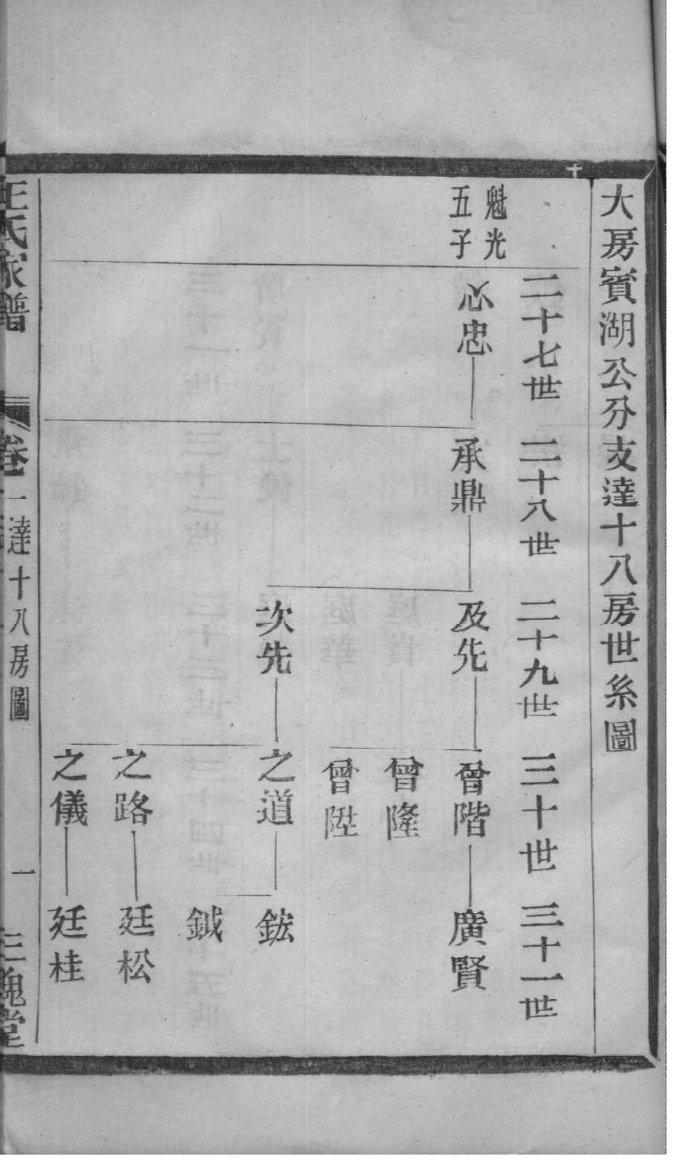 大房賓湖公分支達十八房世系圖
二十七世
二十八世
二十九世
三十世
三十一世
魁光
五子
忠
承鼎
及先
曾階
廣賢
曾隆
曾陞
次先
之道
鈜
鉞
之路
廷松
之儀
廷桂
王氏家譜
卷一
達十八房圖
一
三槐堂